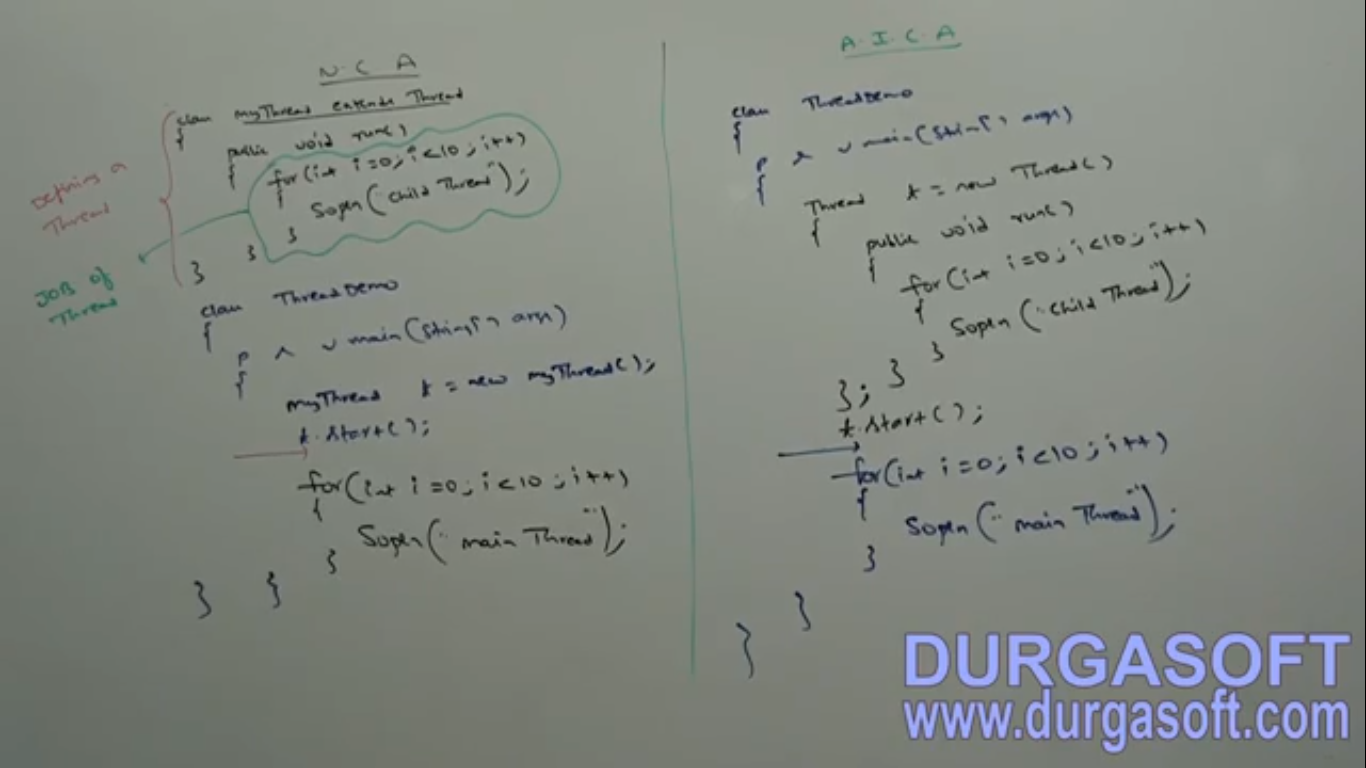 N.C A
class myThread extends Thread
{
public void run()
{
for(int i=0; i<10; i++)
{
Sopln("child Thread");
}
}
}
Defining a
Thread
JOB of
Thread
class ThreadDemo
{
p s v main(String[] args)
{
myThread t = new myThread();
t.start();
for(int i=0; i<10; i++)
{
Sopln("main Thread");
}
}
}
A.I.C.A
class ThreadDemo
{
p s v main(String[] args)
{
Thread t = new Thread()
{
public void run()
{
for(int i=0; i<10; i++)
{
Sopln("child Thread");
}
}
};
t.start();
for(int i=0; i<10; i++)
{
Sopln("main Thread");
}
}
}
DURGASOFT
www.durgasoft.com